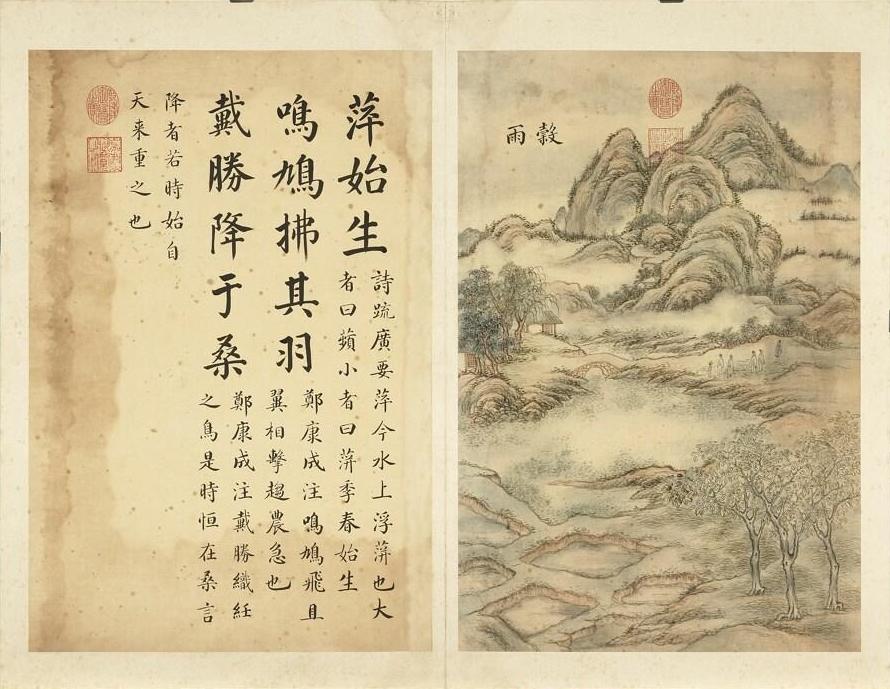 穀雨
萍始生
詩疏廣要萍今水上浮蓱也大
者曰蘋小者曰蓱季春始生
鳴鳩拂其羽
鄭康成注鳴鳩飛且
翼相擊趍農急也
戴勝降于桑
鄭康成注戴勝織紝
之鳥是時恒在桑言
降者若時始自
天来重之也